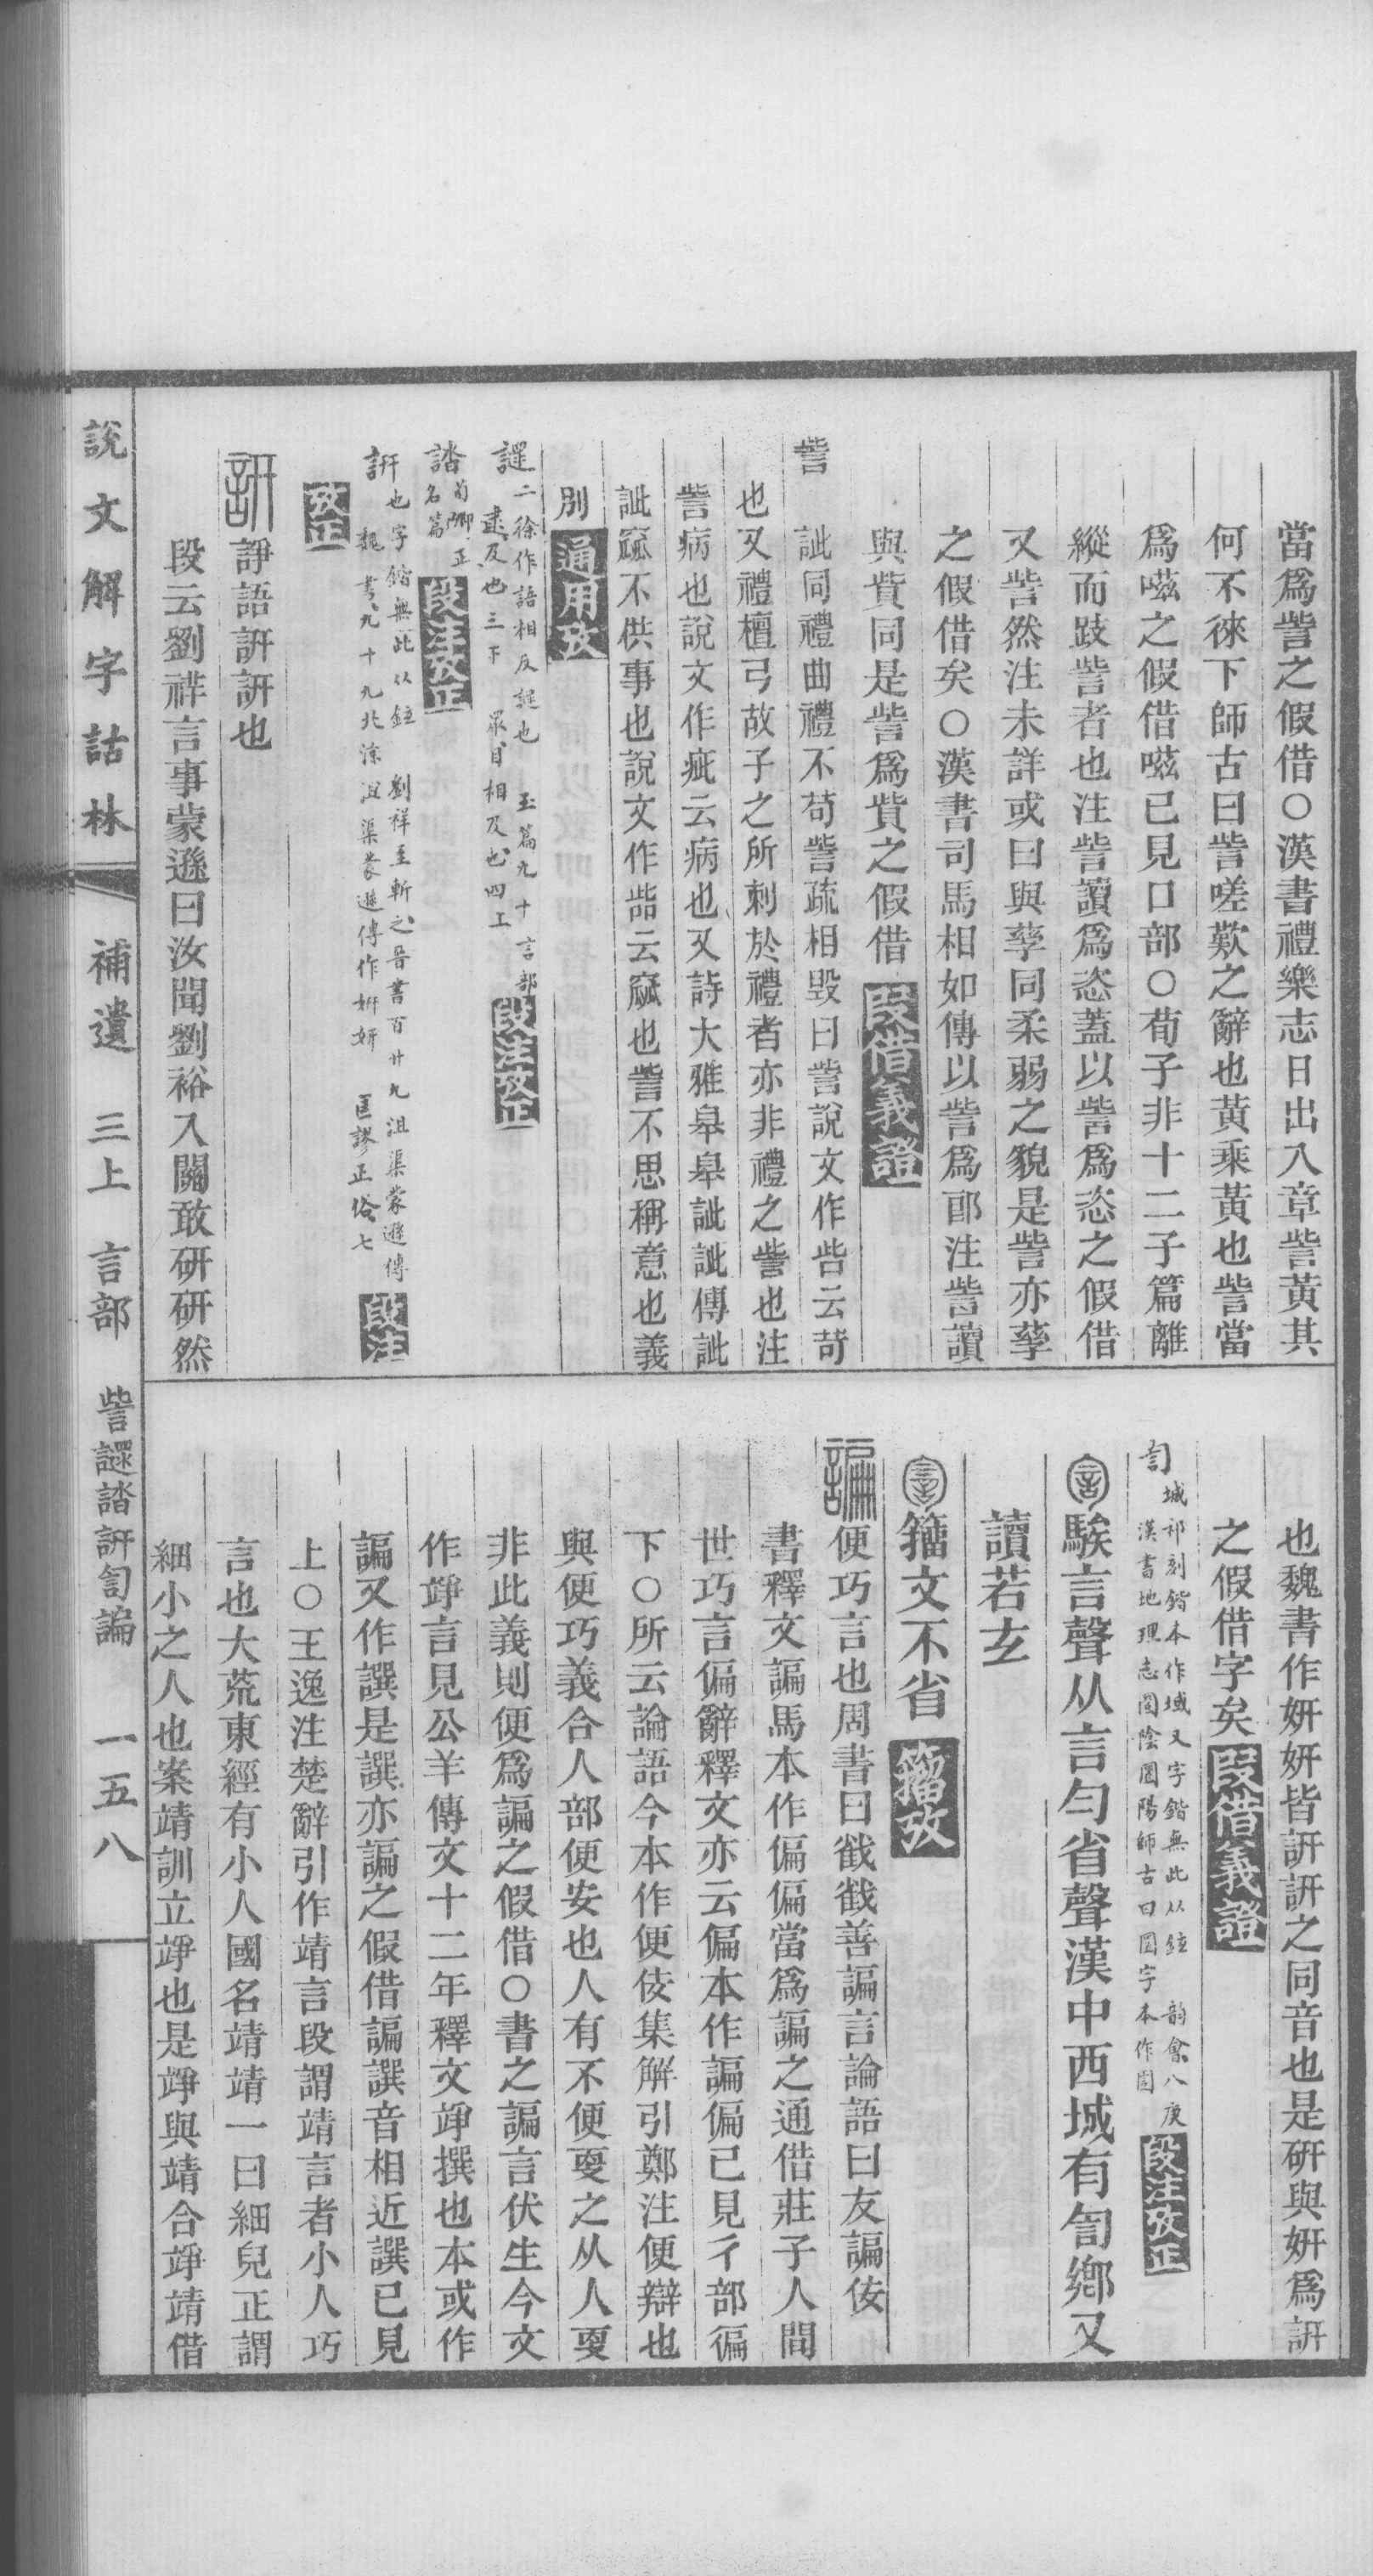 當爲訾之假借○漢書禮樂志日出入章訾黃其
何不徠下師古曰訾嗟歎之辭也黃乘黃也訾當
爲嗞之假借嗞已見口部○荀子非十二子篇離
縱而跂訾者也注訾讀爲恣蓋以訾爲恣之假借
又訾然注未詳或曰與孳同柔弱之貌是訾亦孳
之假借矣○漢書司馬相如傳以訾爲郎注訾讀
與貲同是訾爲貲之假借 叚借義證
訾 訿同禮曲禮不苟訾疏相毀曰訾說文作呰云苛
也又禮檀弓故子之所刺於禮者亦非禮之訾也注
訾病也說文作疵云病也又詩大雅皋皋訿訿傳訿
訿窳不供事也說文作㱴云窳也訾不思稱意也義
別 通用攷
䜚 二徐作語相反䜚也 玉篇九十言部
遝及也三下 眔目相及也四上 段注攷正
誻 荀卿正
名篇 段注攷正
訮 也字鍇無此从鉉 劉祥至斬之晉書百廿九沮渠蒙遜傳
魏書九十九北涼沮渠蒙遜傳作姸姸 匡謬正俗七 段注
攷正
訮 諍語訮訮也
段云劉祥言事蒙遜曰汝聞劉裕入關敢研研然
也魏書作姸姸皆訮訮之同音也是研與姸爲訮
之假借字矣 叚借義證
訇 城祁刻鍇本作域又字鍇無此从鉉 韵會八庚
漢書地理志圁陰圁陽師古曰圁字本作圁 段注攷正
訇 騃言聲从言勻省聲漢中西城有訇鄉又
讀若玄
籒文不省 籒攷
諞 便巧言也周書曰截截善諞言論語曰友諞佞
書釋文諞馬本作偏偏當爲諞之通借莊子人間
世巧言偏辭釋文亦云偏本作諞偏已見彳部徧
下○所云論語今本作便佞集解引鄭注便辯也
與便巧義合人部便安也人有不便㪅之从人㪅
非此義則便爲諞之假借○書之諞言伏生今文
作竫言見公羊傳文十二年釋文竫撰也本或作
諞又作譔是譔亦諞之假借諞譔音相近譔已見
上○王逸注楚辭引作靖言段謂靖言者小人巧
言也大荒東經有小人國名靖靖一曰細皃正謂
細小之人也案靖訓立竫也是竫與靖合竫靖借
說文解字詁林 補遺 三上 言部 訾䜚誻訮訇諞 一五八